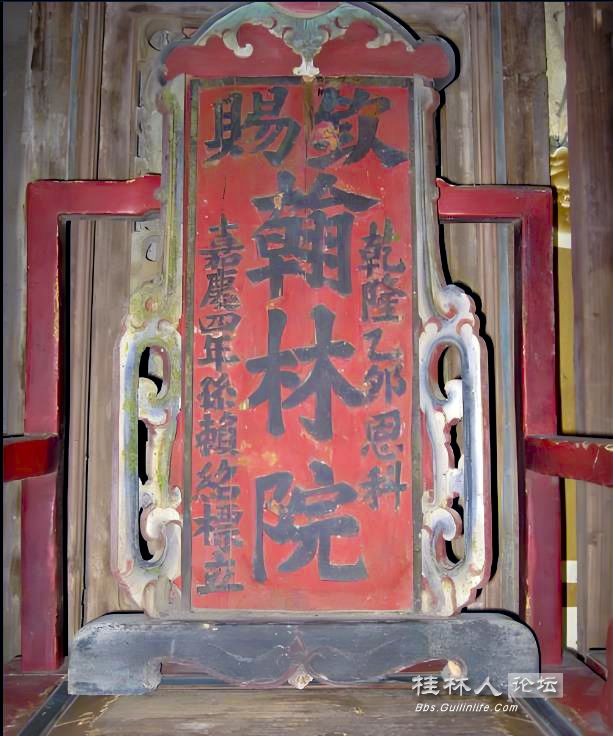 欽賜
乾隆乙卯恩科
翰林院
嘉慶四年孫賴紹標立
桂林人论坛
Bbs.Guilinlife.Com